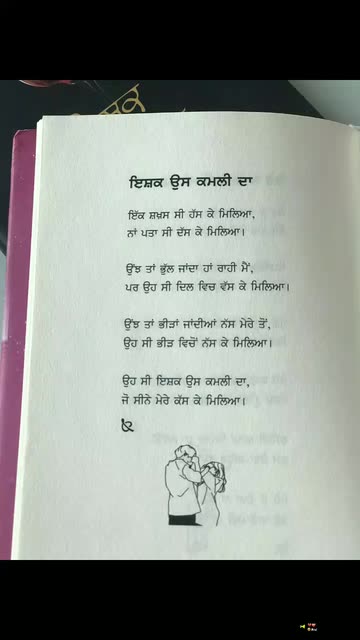 ਇਸ਼ਕ ਉਸ ਕਮਲੀ ਦਾ
ਇੱਕ ਸ਼ਖਸ ਸੀ ਹੱਸ ਕੇ ਮਿਲਿਆ,
ਨਾਂ ਪਤਾ ਸੀ ਦੱਸ ਕੇ ਮਿਲਿਆ।
ਉਂਝ ਤਾਂ ਭੁੱਲ ਜਾਂਦਾ ਹਾਂ ਰਾਹੀ ਮੈਂ,
ਪਰ ਉਹ ਸੀ ਦਿਲ ਵਿਚ ਵੱਸ ਕੇ ਮਿਲਿਆ।
ਉਂਝ ਤਾਂ ਭੀੜਾਂ ਜਾਂਦੀਆਂ ਨੱਸ ਮੇਰੇ ਤੋਂ,
ਉਹ ਸੀ ਭੀੜ ਵਿਚੋਂ ਨੱਸ ਕੇ ਮਿਲਿਆ।
ਉਹ ਸੀ ਇਸ਼ਕ ਉਸ ਕਮਲੀ ਦਾ,
ਜੋ ਸੀਨੇ ਮੇਰੇ ਕੱਸ ਕੇ ਮਿਲਿਆ।